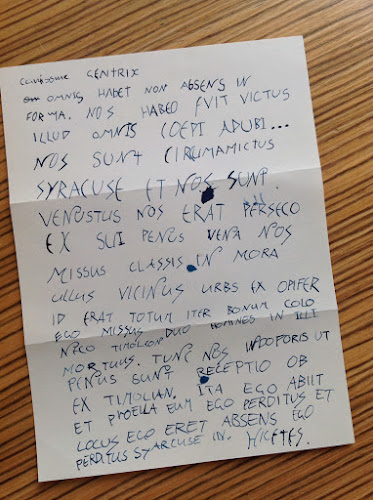 Carissime GENTRIX
OMNIS HABET NON ABSENS IN
FORMA. NOS HABEO FUIT VICTUS
ILLUD OMNIS COEPI ADUBI...
NOS SUNT CIRCUMAMICTUS
SYRACUSE ET NOS SUNT
VENUSTUS NOS ERAT PERSECO
EX SUI PENUS VENA NOS
MISSUS CLASSIS IN MORA
ULLUS VICINUS URBS EX OPIFER
ID ERAT TOTUM ITER BONUM COLO
EGO MISSUS DUO HOMINES IN
NECO TIMOLION
MORTUUS. TUNC NOS INDOFORIS UT
PENUS SUNT RECEPTIO OB
EX TIMOLIAN. ITA EGO ABIIT
ET PROELLA EUM EGO PERDITUS ET
LOCUS EGO ERET ABSENS EGO
PERDITUS SYARCUSE IN. HICETES.